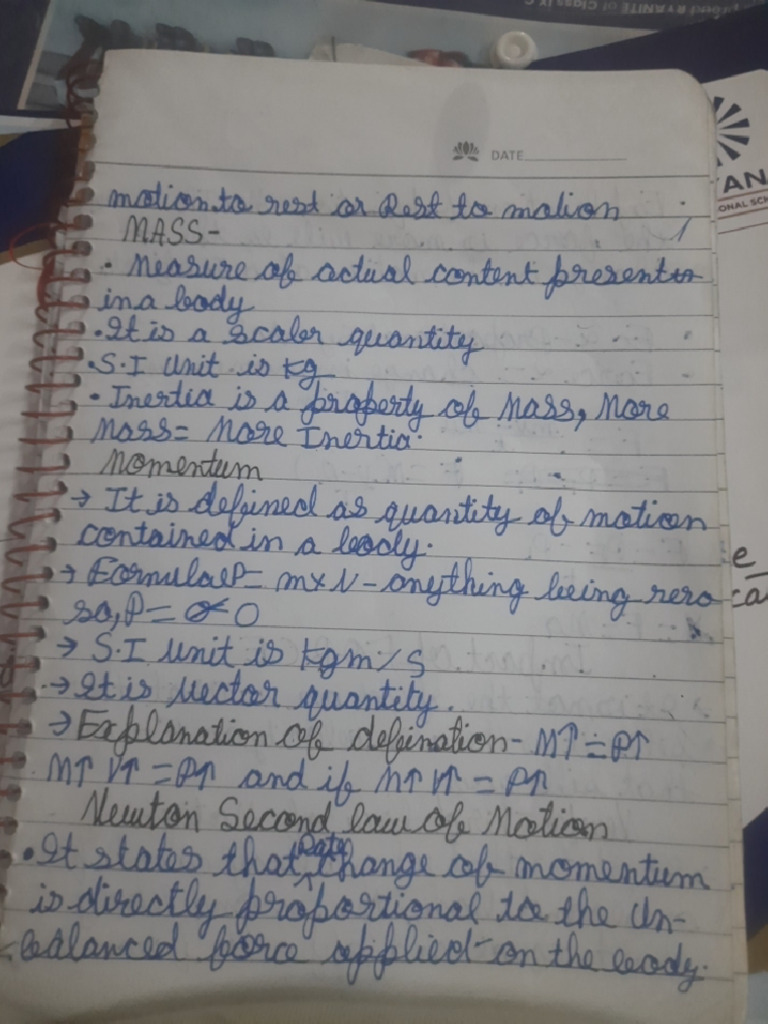 DATE
motion to rest or Rest to motion
MASS-
• Measure of actual content present
in a body
• It is a scaler quantity
• S.I Unit is kg
• Inertia is a property of Mass, More
Mass = More Inertia.
Momentum
→ It is defined as quantity of motion
contained in a body.
→ Formula P = m×V - anything being zero
so, P = 0
→ S.I unit is kgm/s
→ It is Vector quantity.
→ Explanation of defination - M↑ = P↑
M↑ V↑ = P↑ and if M↑ V↑ = P↑
Newton Second law of Motion
• It states that Rate change of momentum
is directly proportional to the Un-
balanced force applied on the body.